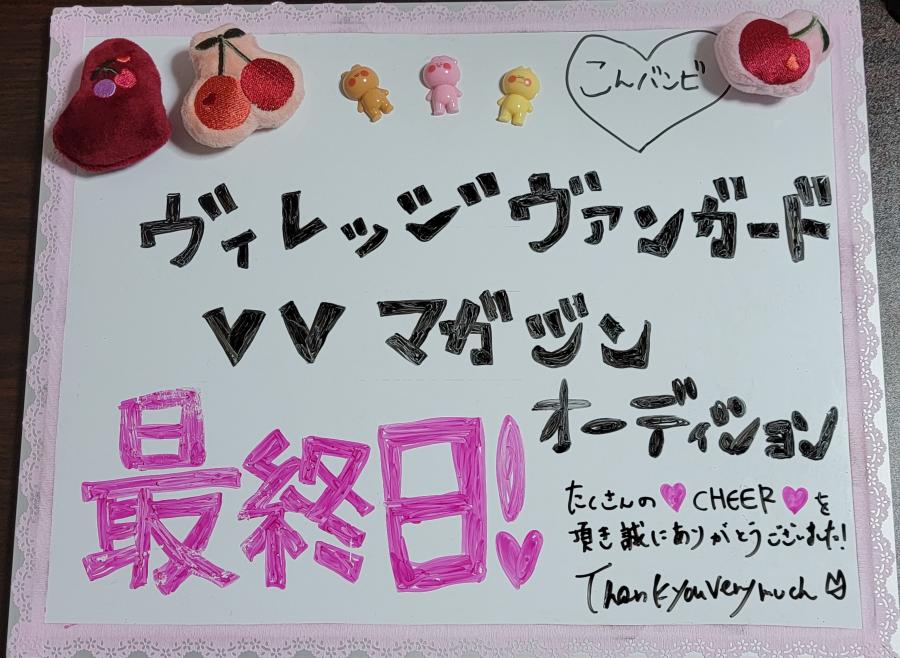 こんバンビ
ヴィレッジヴァンガード
VV マガジン
オーディション
最終日!
たくさんの♥CHEER♥を
頂き誠にありがとうございました!
Thank you very much♡